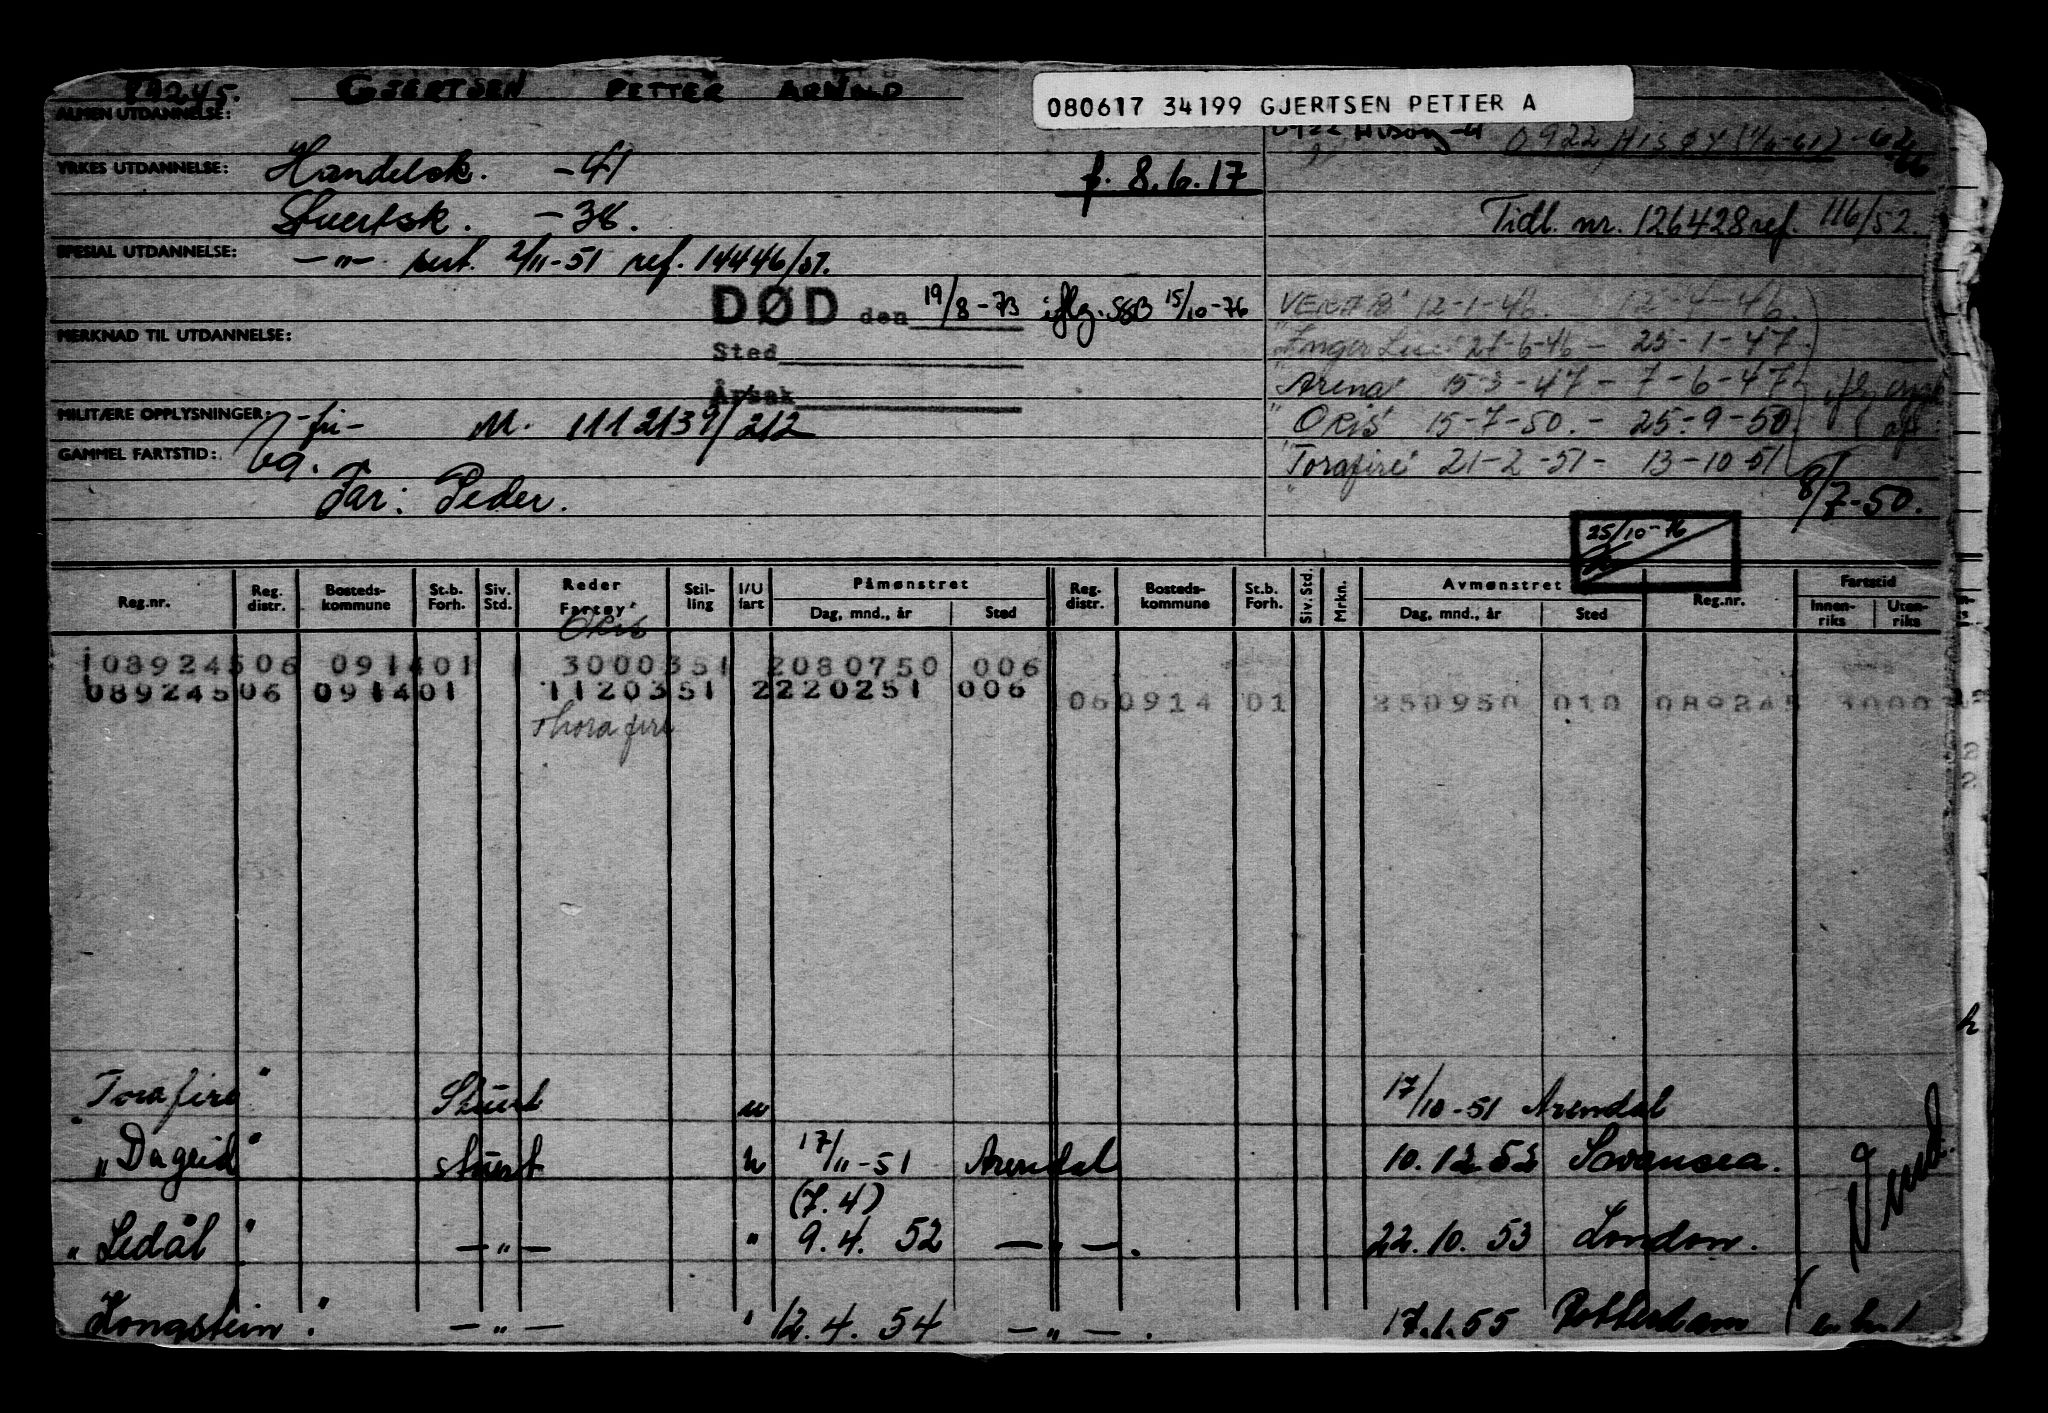 GJERTSEN PETTER ARNOLD
080617 34199 GJERTSEN PETTER A
ALMEN UTDANNELSE:
0922 HISØY
YRKES UTDANNELSE: Handelsk. -41
f. 8.6.17
Stuertsk. -38.
Tidl. nr. 126428 ref. 116/52.
SPESIAL UTDANNELSE: -"- sert. 2/11-51 ref. 14446/51.
DØD den 19/8-73 iflg. SSB 15/10-76
12-1-46. 12-4-46.
MERKNAD TIL UTDANNELSE:
Sted
"Inger Lise" 27-6-46 - 25-1-47
Årsak
"Arena" 15-3-47 - 7-6-47
MILITÆRE OPPLYSNINGER: -fri- M. 111 2139/212
"ORIS" 15-7-50. - 25-9-50
GAMMEL FARTSTID:
"Torafire" 21-2-51 - 13-10-51
Far: Peder.
8/7-50.
25/10-76
Reg.nr. Reg. distr. Bosteds-kommune St.b. Forh. Siv. Std. Reder Fartøy Stil-ling I/U fart Påmønstret Dag, mnd., år Sted Reg. distr. Bosteds-kommune St.b. Forh. Siv. Std. Mrkn. Avmønstret Dag, mnd., år Sted Reg.nr. Fartstid Innen-riks Uten-riks
Oris
108924506 091401 3000351 2080750 006
08924506 091401 1120351 2220251 006
060914 01 250950 010 089245
Thorafire
Torafire" Stuert u 17/10-51 Arendal
"Dagrid" stuert u 17/11-51 Arendal 10.12.52 Swansea.
(7.4)
"Ledål" -"- " 9.4.52 -"-. 22.10.53 London.
Longstein". -"- " 12.4.54 -"-. 17.1.55 Rotterdam